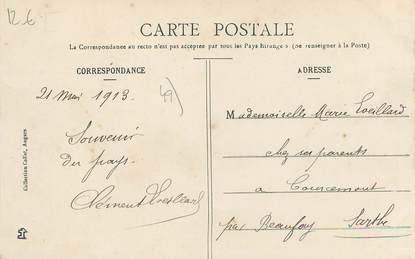 12.6
CARTE POSTALE
La Correspondance au recto n'est pas acceptée par tous les Pays étrangers (se renseigner à la Poste)
CORRESPONDANCE
21 Mai 1913.
49)
Souvenir
du pays.
Clément Loeillard
Collection Collet, Angers
ADRESSE
Mademoiselle Marie Loeillard
chez ses parents
a Courcemont
par Beaufay Sarthe